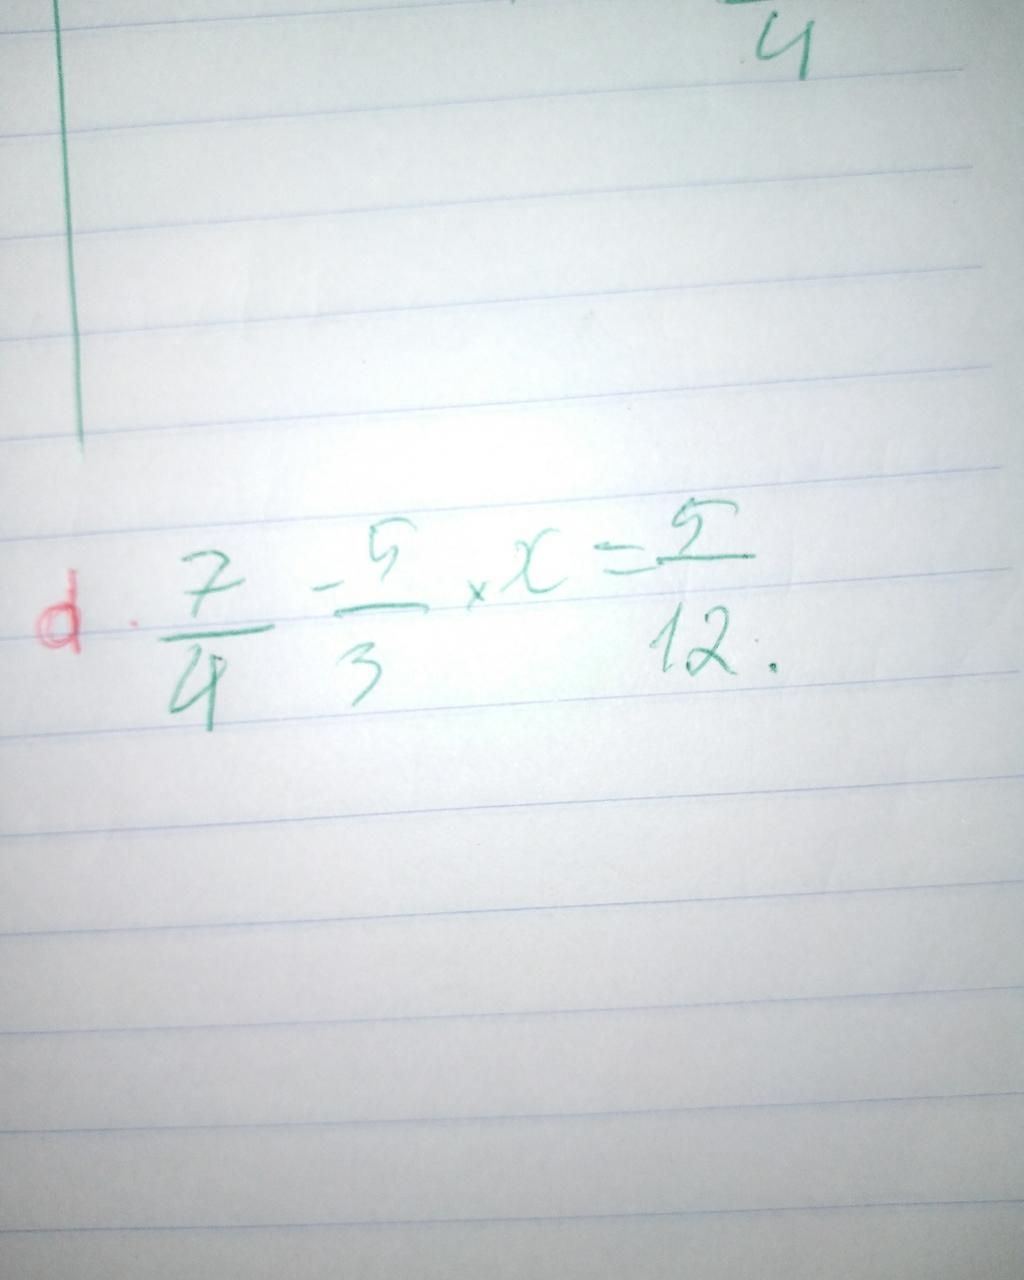 4
d. 7/4 - 5/3 × x = 5/12.